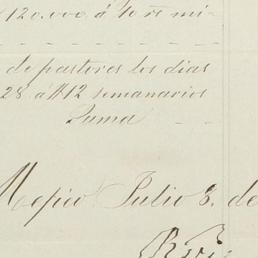 120.000 á 40 rs mi-
de pastores los dias
28 á $12 semanarios
Suma
Mejico Julio 8. de